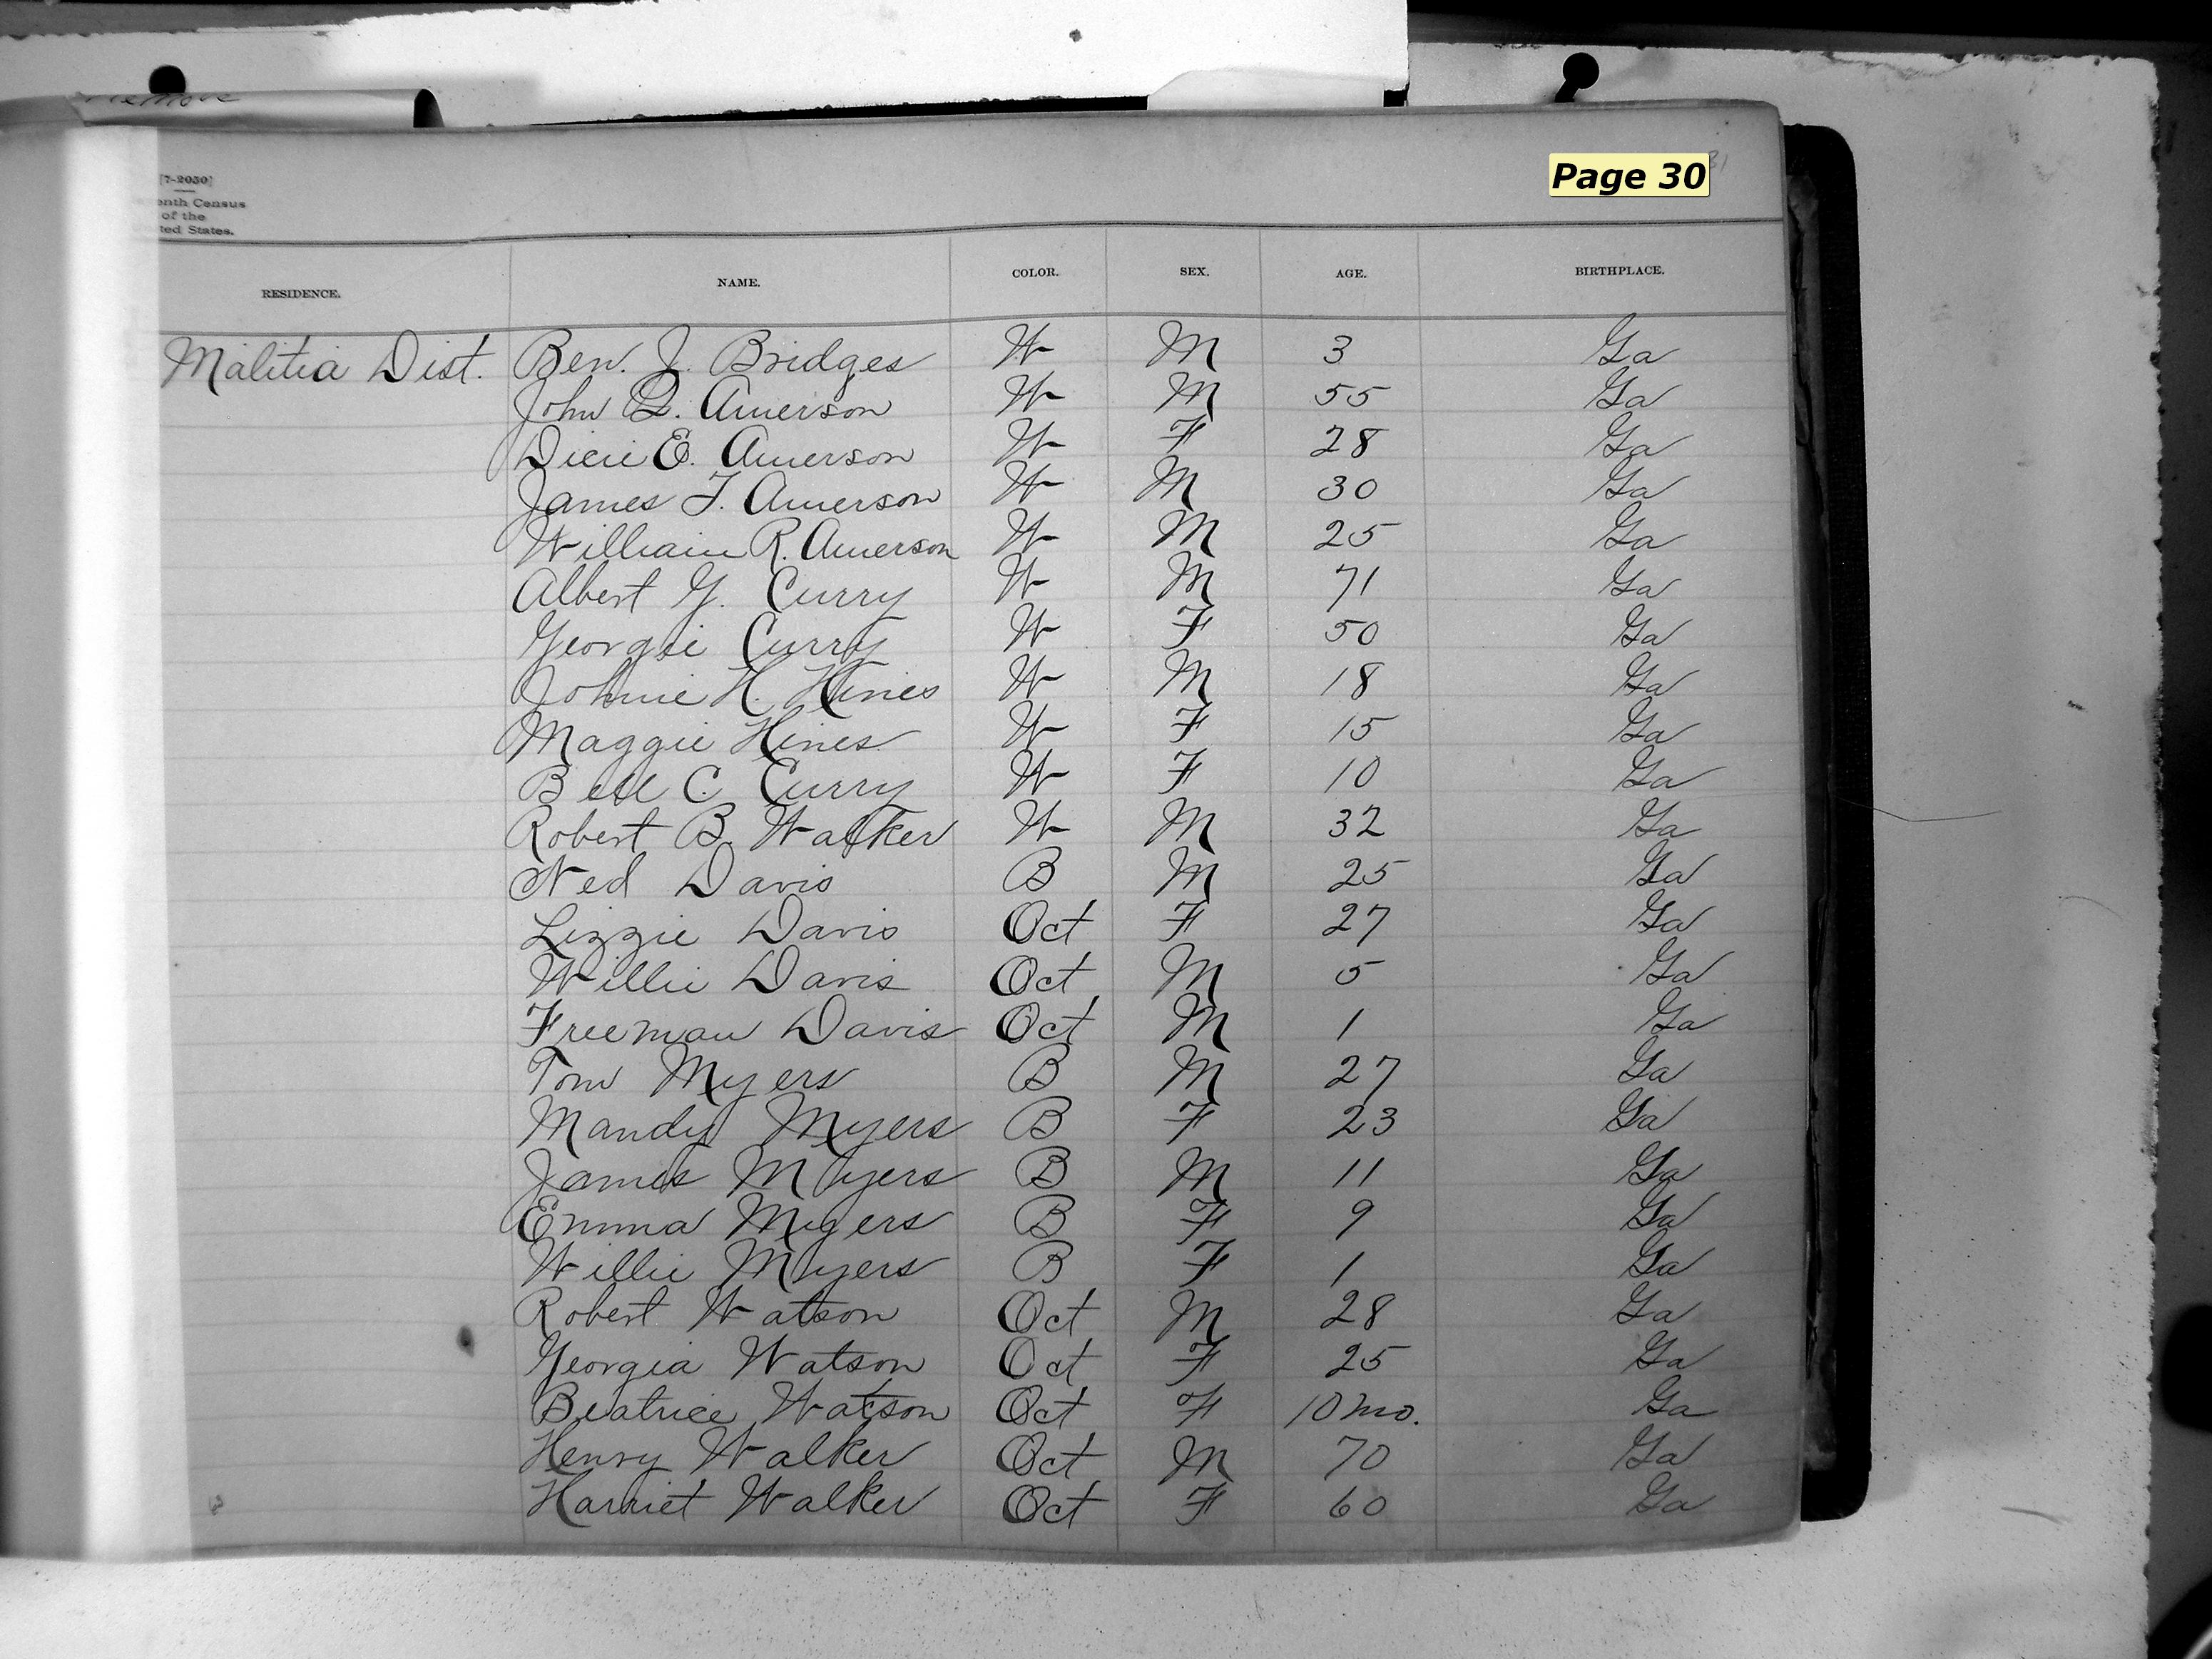 Remove
Page 30
31
[7-2050]
enth Census
of the
ted States.
RESIDENCE. NAME. COLOR. SEX. AGE. BIRTHPLACE.
Malitia Dist. Ben. J. Bridges W M 3 Ga
John Q. Amerson W M 55 Ga
Dicie E. Amerson W F 28 Ga
James T. Amerson W M 30 Ga
William R. Amerson W M 25 Ga
Albert G. Curry W M 71 Ga
Georgie Curry W F 50 Ga
Johnie H. Hines W M 18 Ga
Maggie Hines W F 15 Ga
Bell C. Curry W F 10 Ga
Robert B. Walker W M 32 Ga
Ned Davis B M 25 Ga
Lizzie Davis Oct F 27 Ga
Willie Davis Oct M 5 Ga
Freeman Davis Oct M 1 Ga
Tom Myers B M 27 Ga
Mandy Myers B F 23 Ga
James Myers B M 11 Ga
Emma Myers B F 9 Ga
Willie Myers B F 1 Ga
Robert Watson Oct M 28 Ga
Georgia Watson Oct F 25 Ga
Beatrice Watson Oct F 10 mo. Ga
Henry Walker Oct M 70 Ga
Harriet Walker Oct F 60 Ga